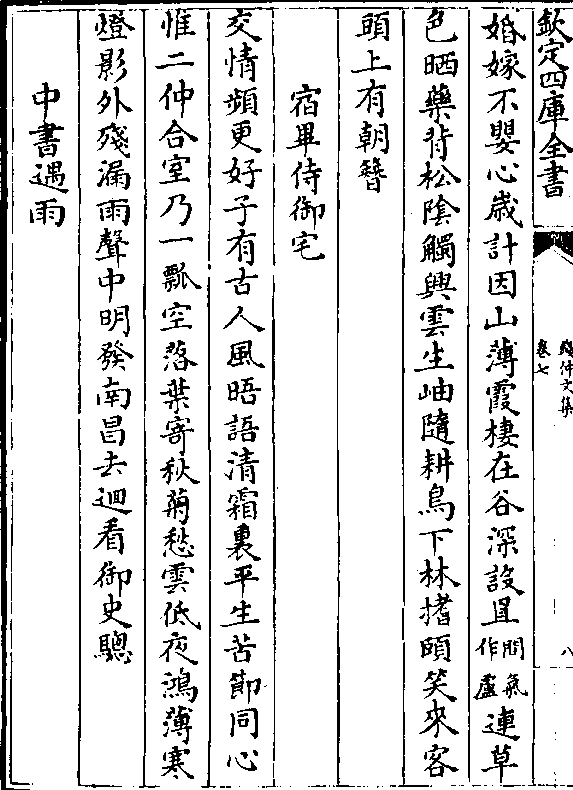 欽定四庫全書
錢仲文集
卷七
八
婚嫁不嬰心歲計因山薄霞棲在谷深設罝間氣作盧連草
色晒藥背松陰觸興雲生岫隨耕鳥下林搘頤笑來客
頭上有朝簪
宿畢侍御宅
交情頻更好子有古人風晤語清霜裏平生苦節同心
惟二仲合室乃一瓢空落葉寄秋菊愁雲低夜鴻薄寒
燈影外殘漏雨聲中明發南昌去迴看御史驄
中書遇雨